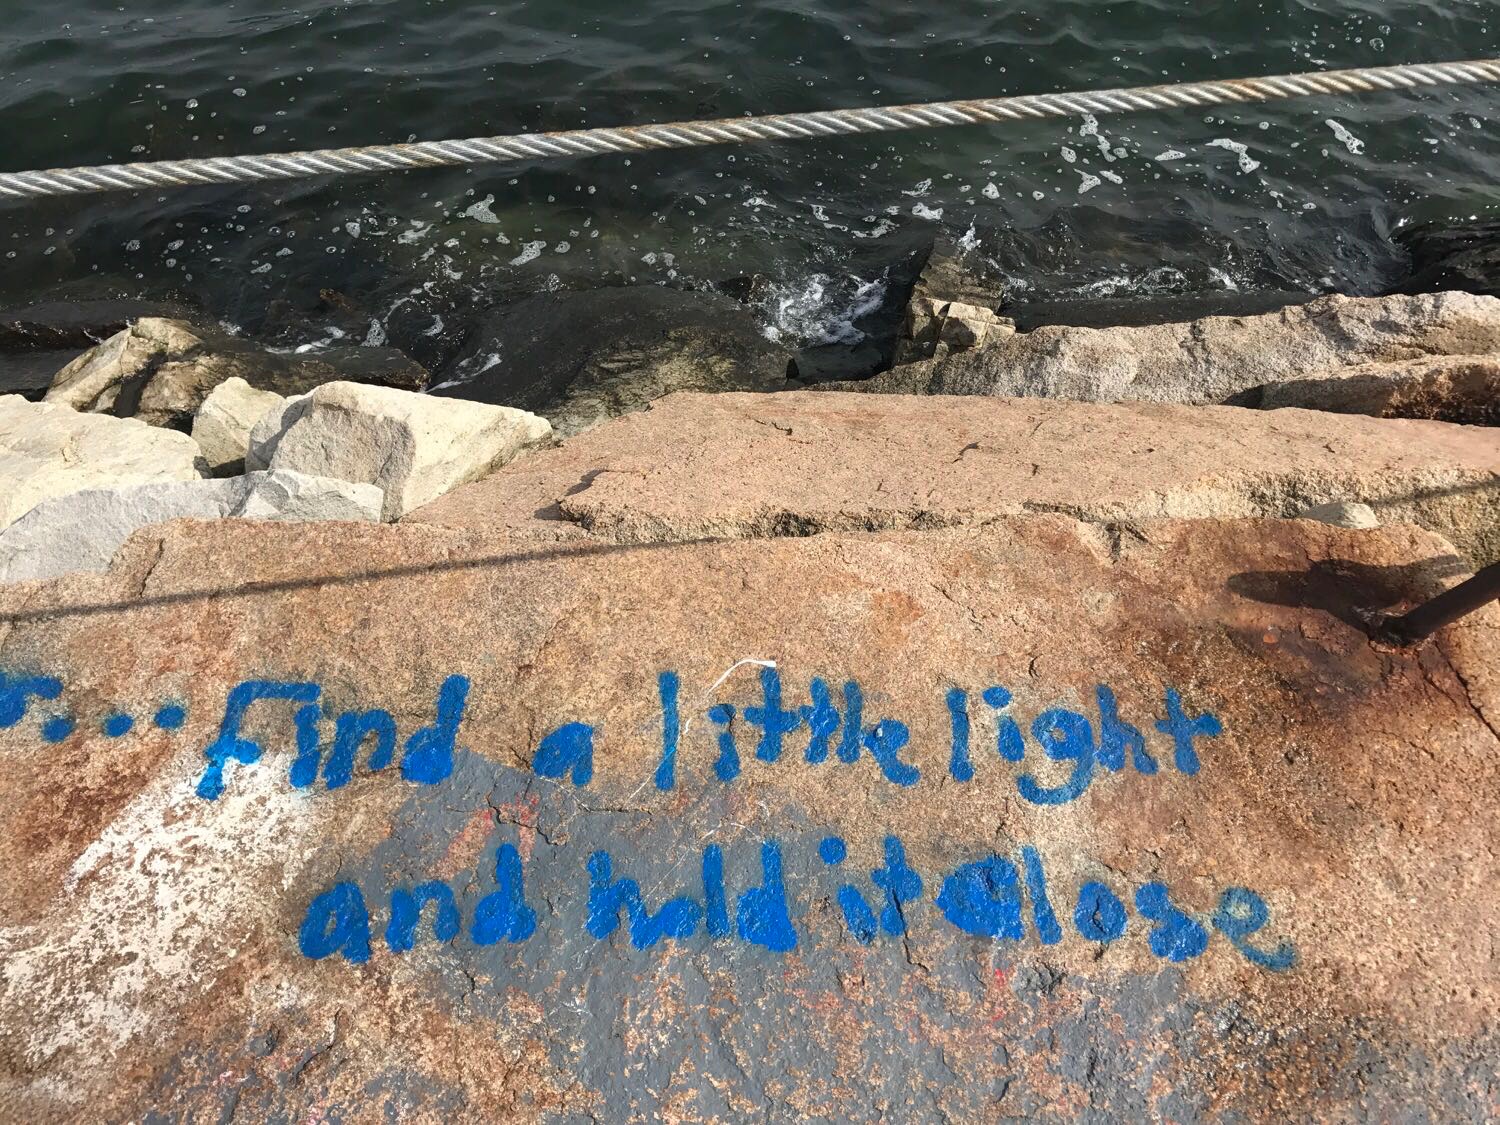 ... Find a little light
and hold it close